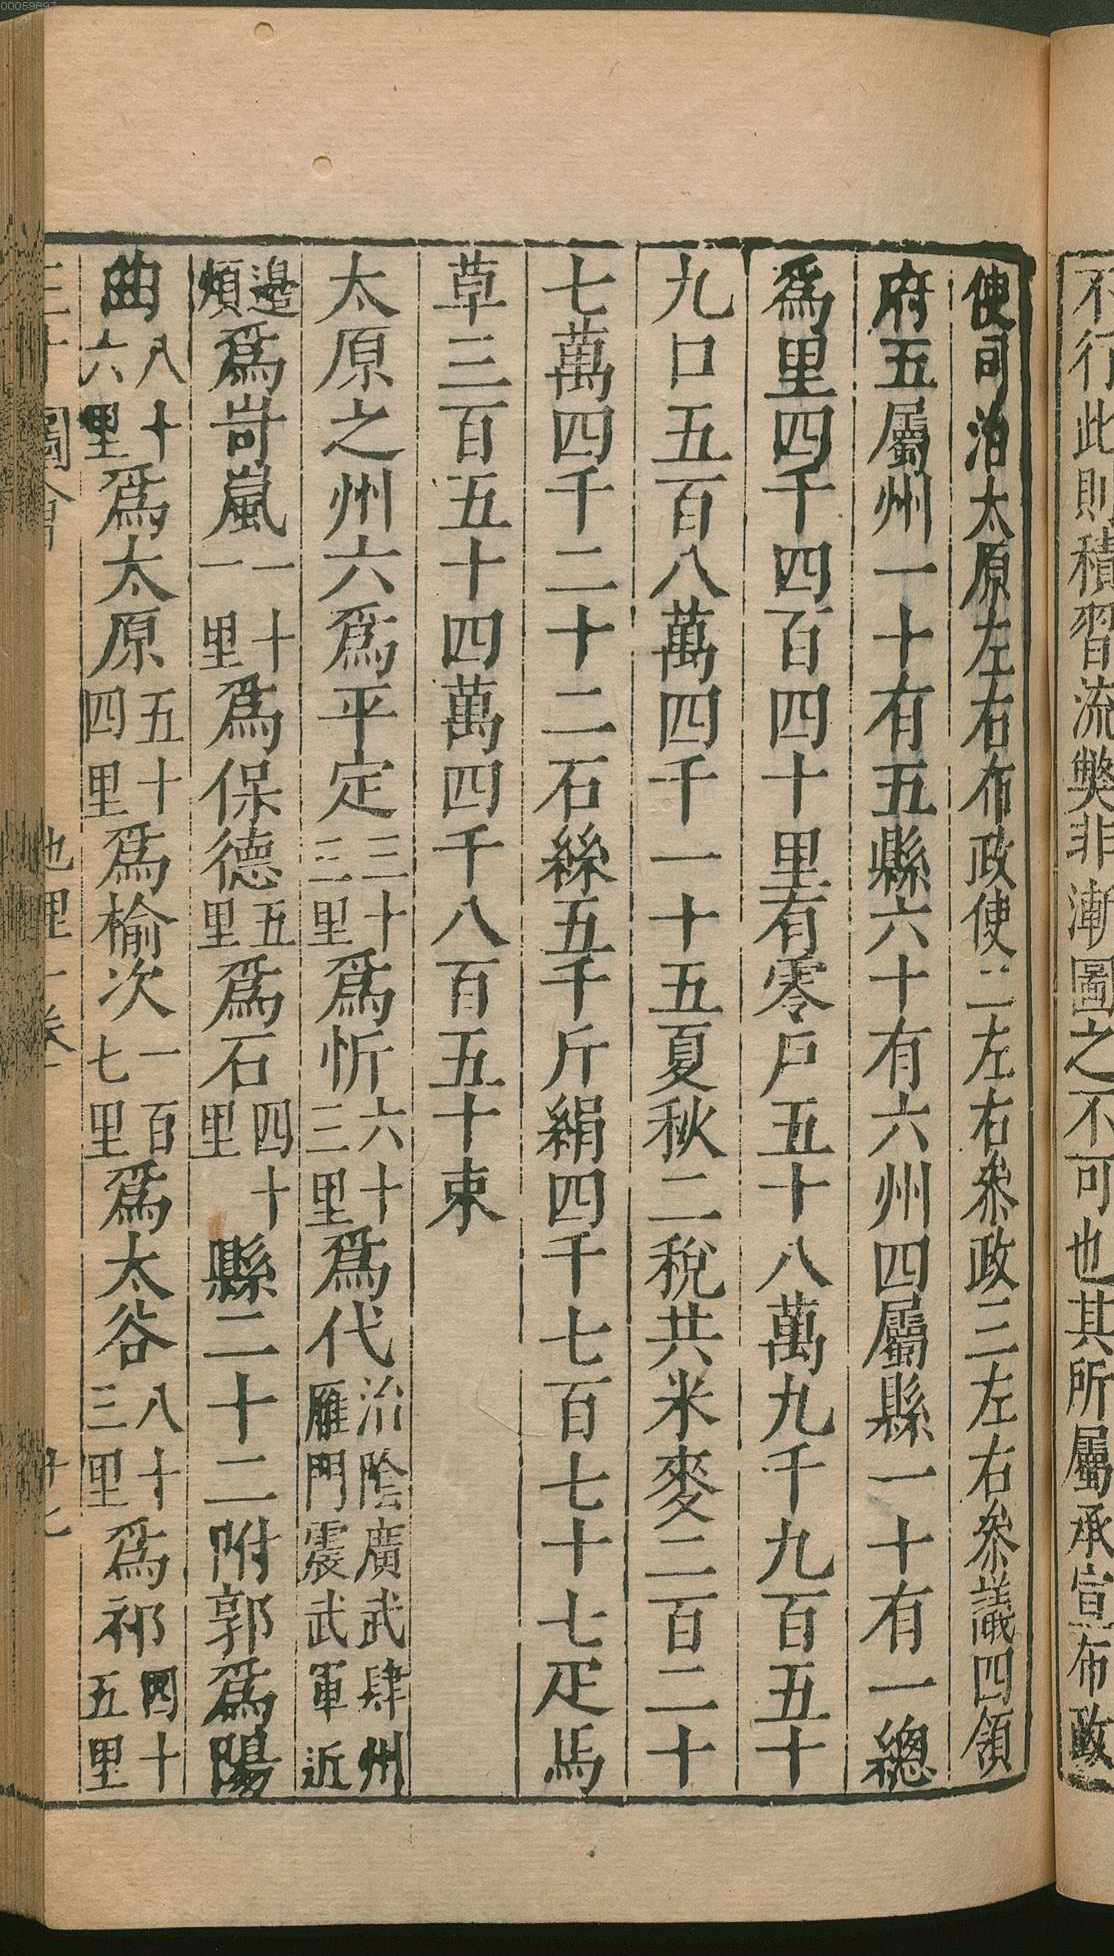 不行此則積習流獘非漸圖之不可也其所屬承宣布政
使司治太原左右布政使二左右叅政三左右叅議四領
府五屬州一十有五縣六十有六州四屬縣一十有一總
爲里四千四百四十里有零戶五十八萬九千九百五十
九口五百八萬四千一十五夏秋二稅共米麥二百二十
七萬四千二十二石絲五千斤絹四千七百七十七疋馬
草三百五十四萬四千八百五十束
太原之州六爲平定三十三里爲忻六十三里爲代治陰廣武肆州雁門震武軍近
邊煩爲岢嵐一十一里爲保德五里爲石四十里縣二十二附郭爲陽
曲八十六里爲太原五十四里爲榆次一百七里爲太谷八十三里爲祁四十五里
圖會 地理一卷
00059897